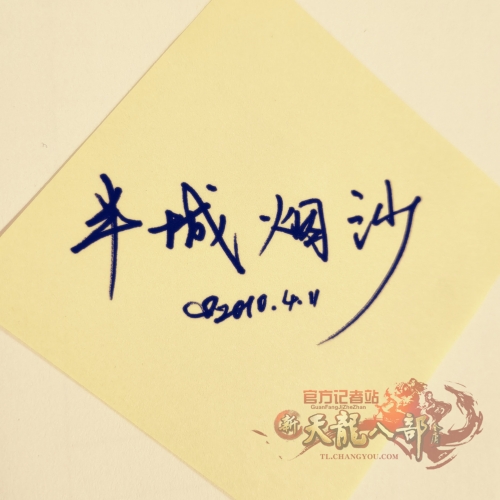 半城烟沙
2010.4.11
官方记者站
GuanFangJiZheZhan
新天龍八部
TL.CHANGYOU.COM